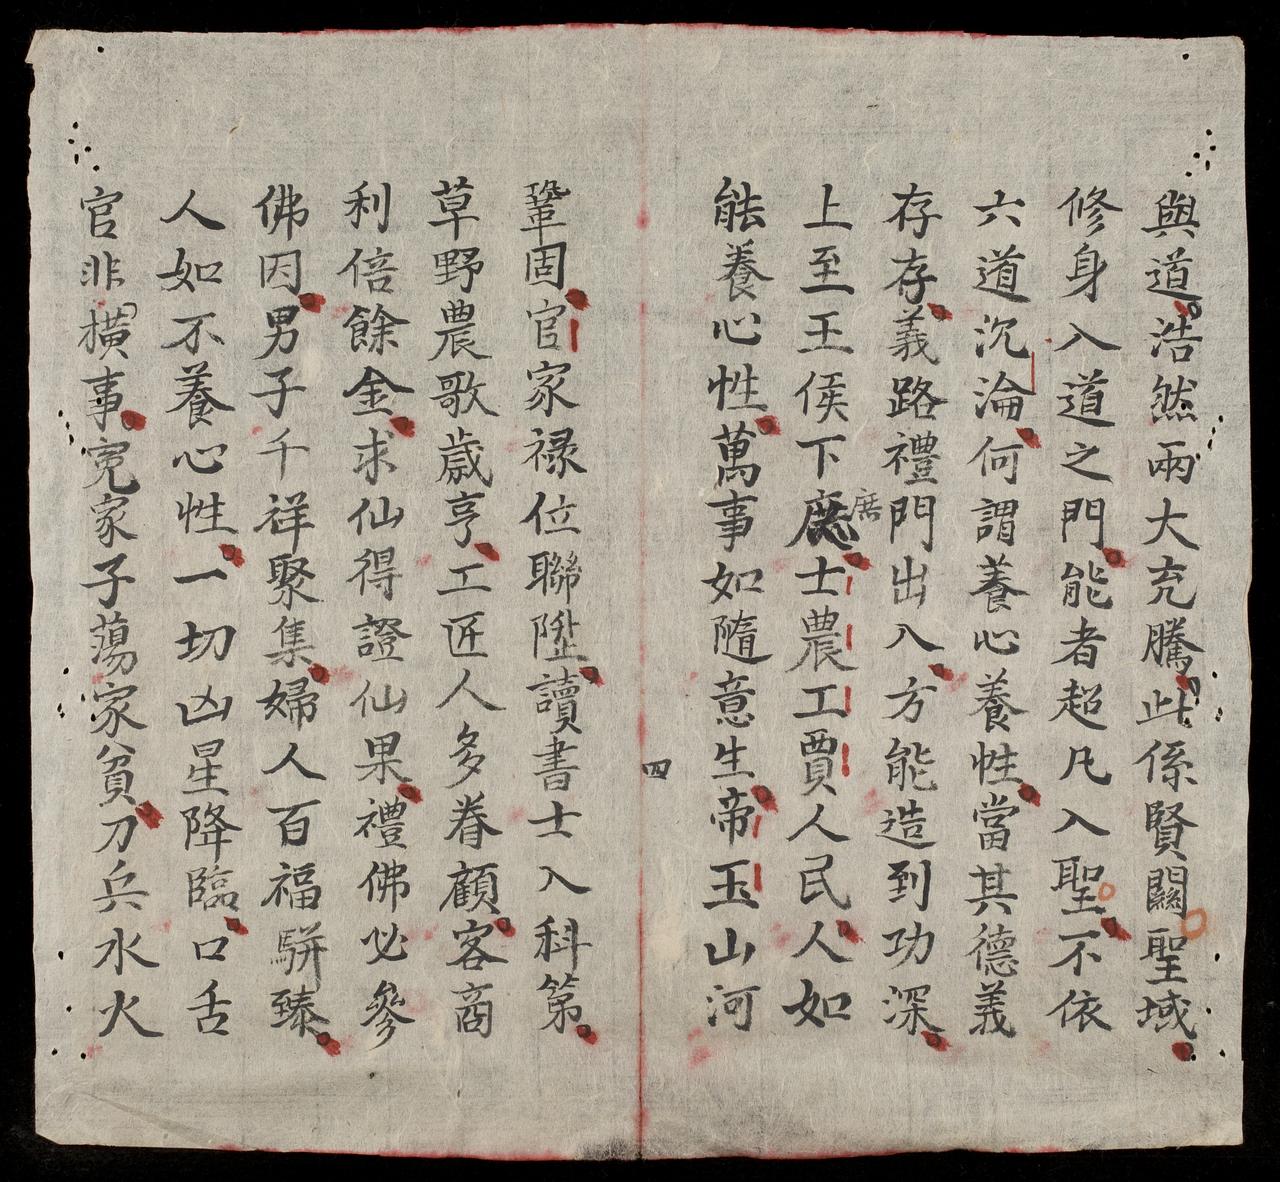 與道。浩然兩大充騰。此係賢關聖域。
修身入道之門。能者超凡入聖。不依
六道沉淪。何謂養心養性。當其德義
存存。義路禮門出入。方能造到功深。
上至王侯下庶。士農工賈人民。人如
庶
能養心性。萬事如隨意生。帝玉山河
四
鞏固。官家祿位聯陞。讀書士入科第。
草野農歌歲亨。工匠人多眷顧。客商
利倍餘金。求仙得證仙果。禮佛必參
佛因。男子千祥聚集。婦人百福駢臻。
人如不養心性。一切凶星降臨。口舌
官非橫事。冤家子蕩家貧。刀兵水火